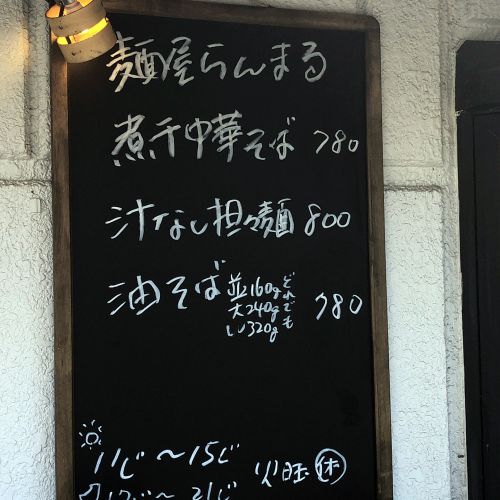 麺屋らんまる
煮干中華そば 780
汁なし担々麺 800
油そば 並160g 大240g 320g どれでも 780
11じ〜15じ 火曜 休
21じ